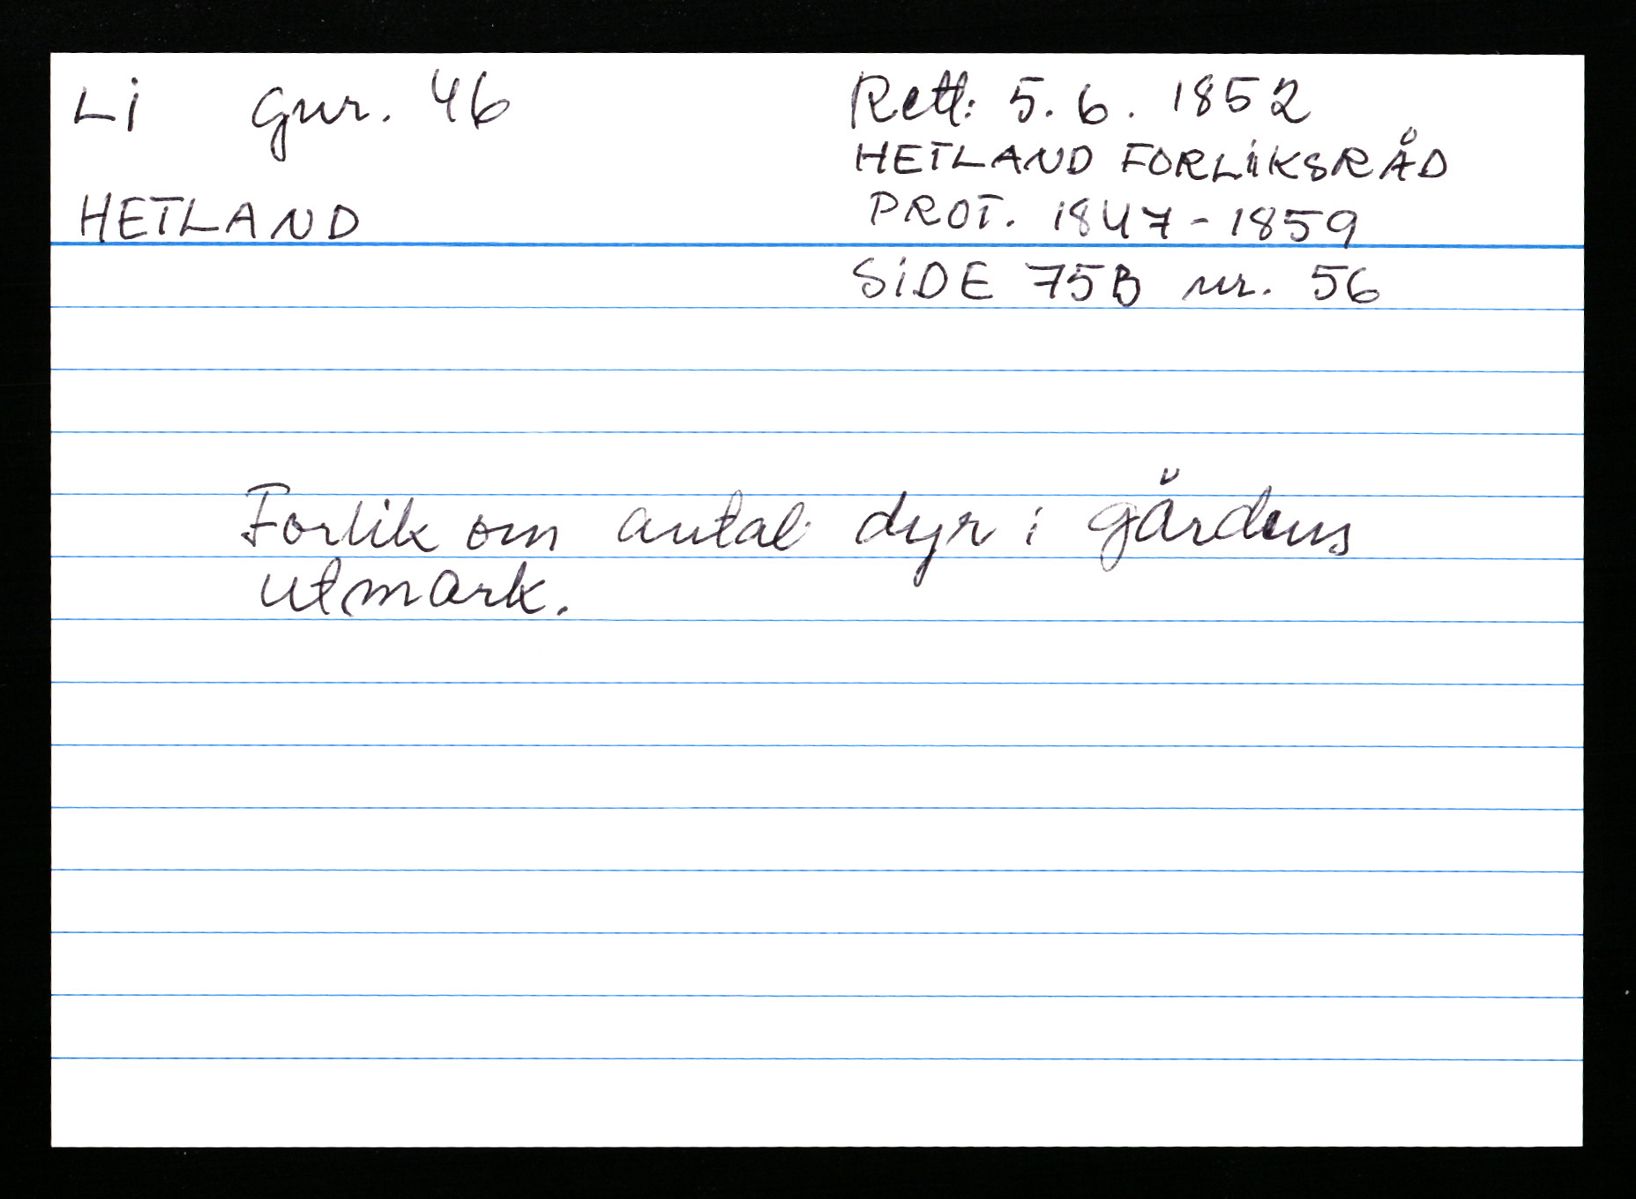 Li gnr. 46
HETLAND
Rett: 5.6. 1852
HETLAND FORLIKSRÅD
PROT. 1847-1859
SIDE 75B nr. 56
Forlik om antal dyr i gårdens
utmark.